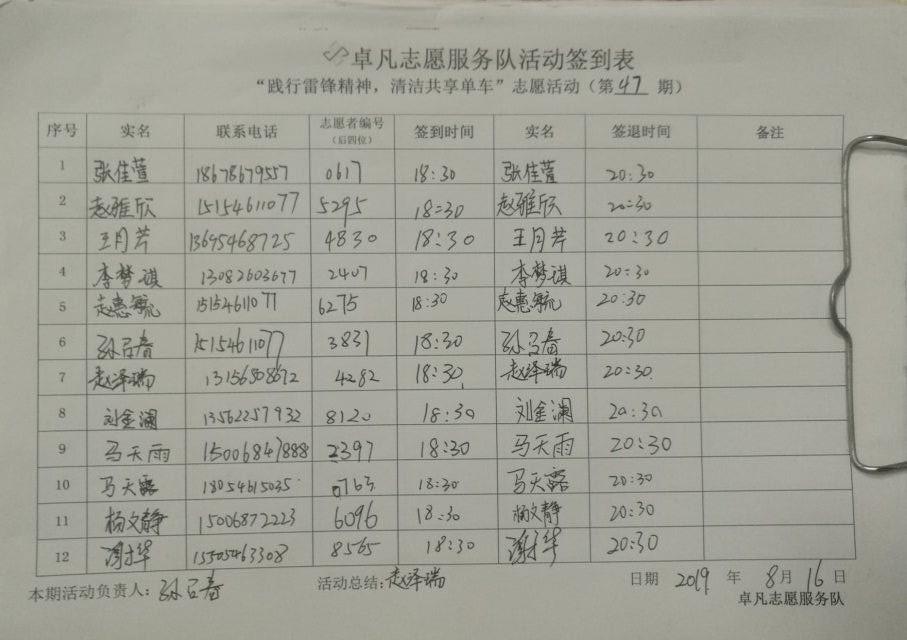 卓凡志愿服务队活动签到表
“践行雷锋精神，清洁共享单车”志愿活动（第47期）
序号 实名 联系电话 志愿者编号（后四位） 签到时间 实名 签退时间 备注
1 张佳萱 18678679557 0617 18:30 张佳萱 20:30
2 赵雅欣 15154611077 5295 18:30 赵雅欣 20:30
3 王月芹 13695468725 4830 18:30 王月芹 20:30
4 李梦琪 13082603677 2407 18:30 李梦琪 20:30
5 赵惠毓 15154611077 6275 18:30 赵惠毓 20:30
6 孙召春 15154611077 3831 18:30 孙召春 20:30
7 赵泽瑞 13156808692 4282 18:30 赵泽瑞 20:30
8 刘金澜 13562257932 8120 18:30 刘金澜 20:30
9 马天雨 15006847888 2397 18:30 马天雨 20:30
10 马天露 18054615035 0763 18:30 马天露 20:30
11 杨文静 15006872223 6096 18:30 杨文静 20:30
12 15505463308 8565 18:30 20:30
本期活动负责人：孙召春 活动总结：赵泽瑞 日期 2019 年 8月 16 日
卓凡志愿服务队